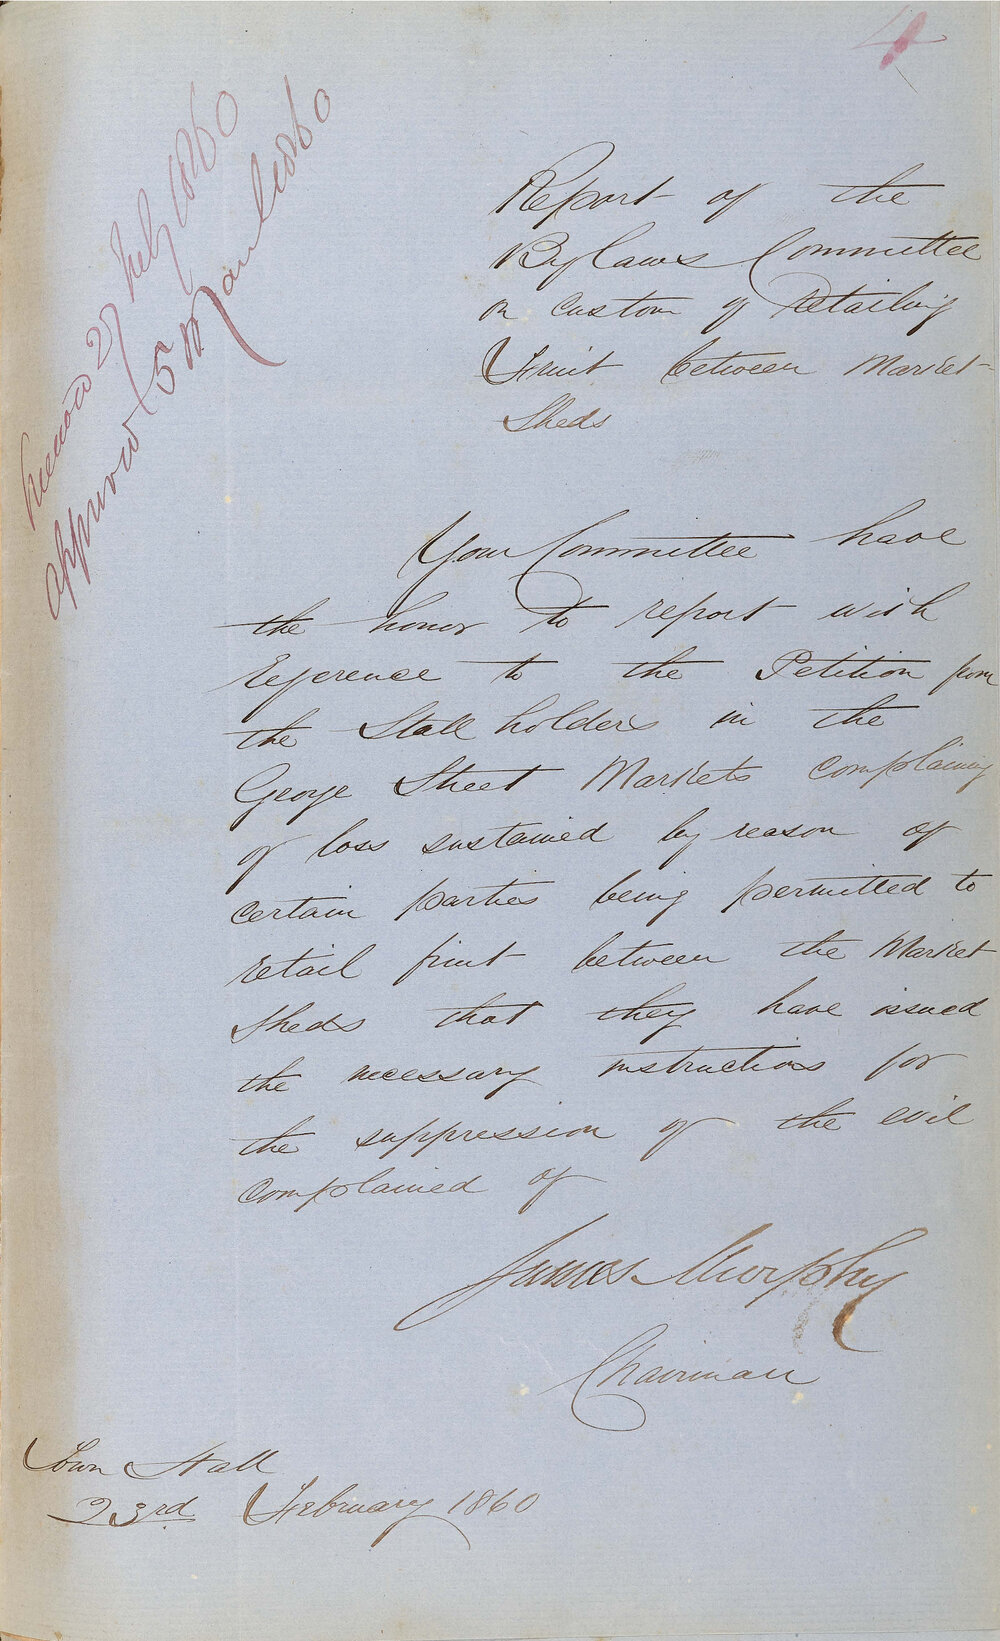 4
Report of the
Bylaws Committee
on custom of retailing
Fruit between Market
Sheds
27 July 1860
approved 5 March 1860
Your Committee have
the honor to report with
reference to the Petition from
the Stall holders in the
George Street Markets complaining
of loss sustained by reason of
certain parties being permitted to
retail fruit between the Market
Sheds that they have issued
the necessary instructions for
the suppression of the evil
complained of
James Murphy
Chairman
Town Hall
23rd February 1860